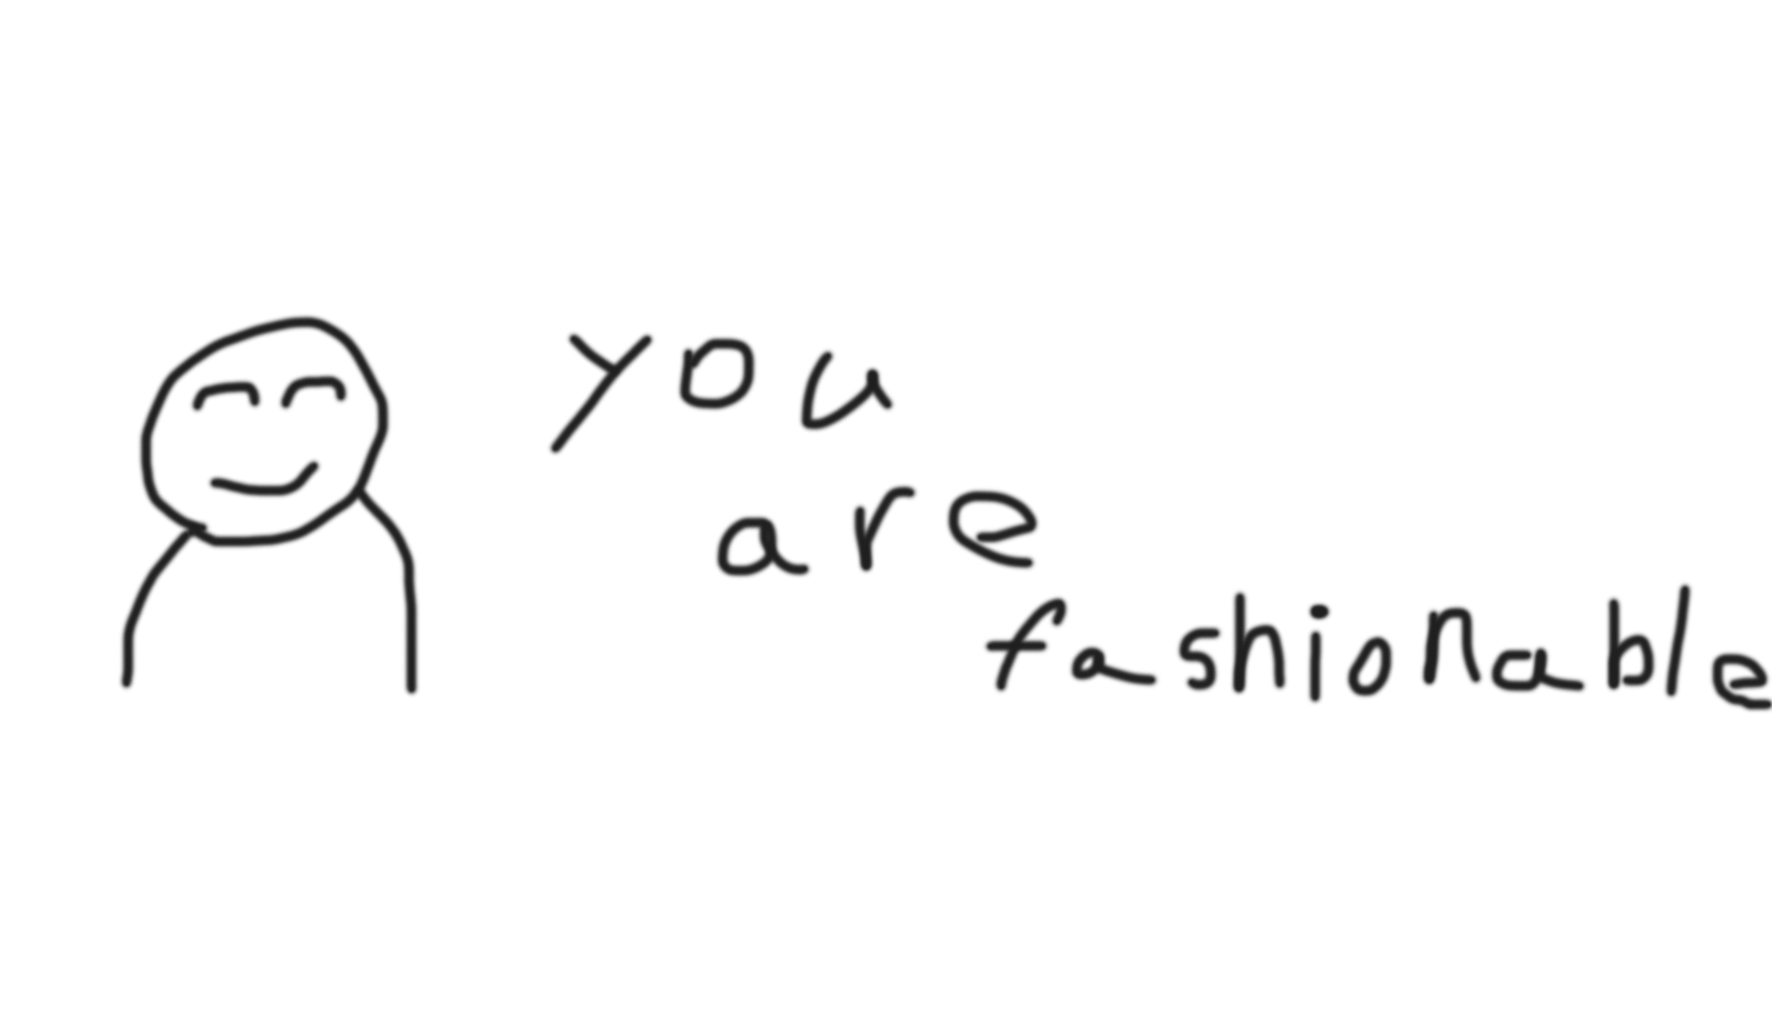 you
are
fashionable